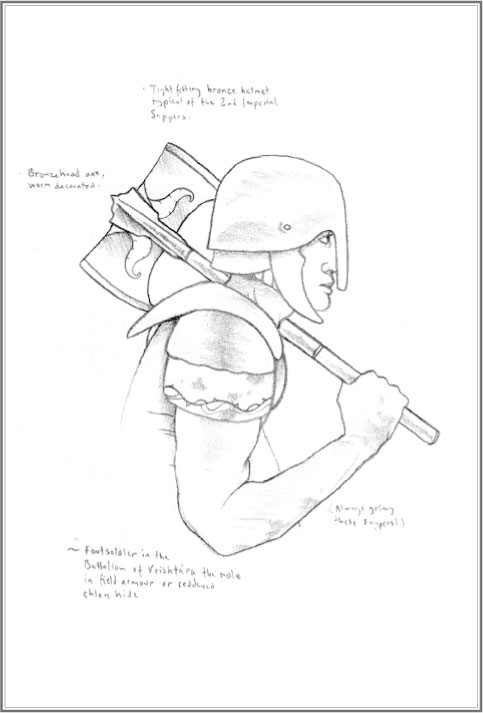 · Tight fitting bronze helmet
typical of the 2nd Imperial
Sappers.
· Bronzehead axe,
worm decorated.
(Always grimy
these Sappers!)
~ Footsoldier in the
Battalion of Vrishtára the mole
in field armour or reddened
chlen hide.